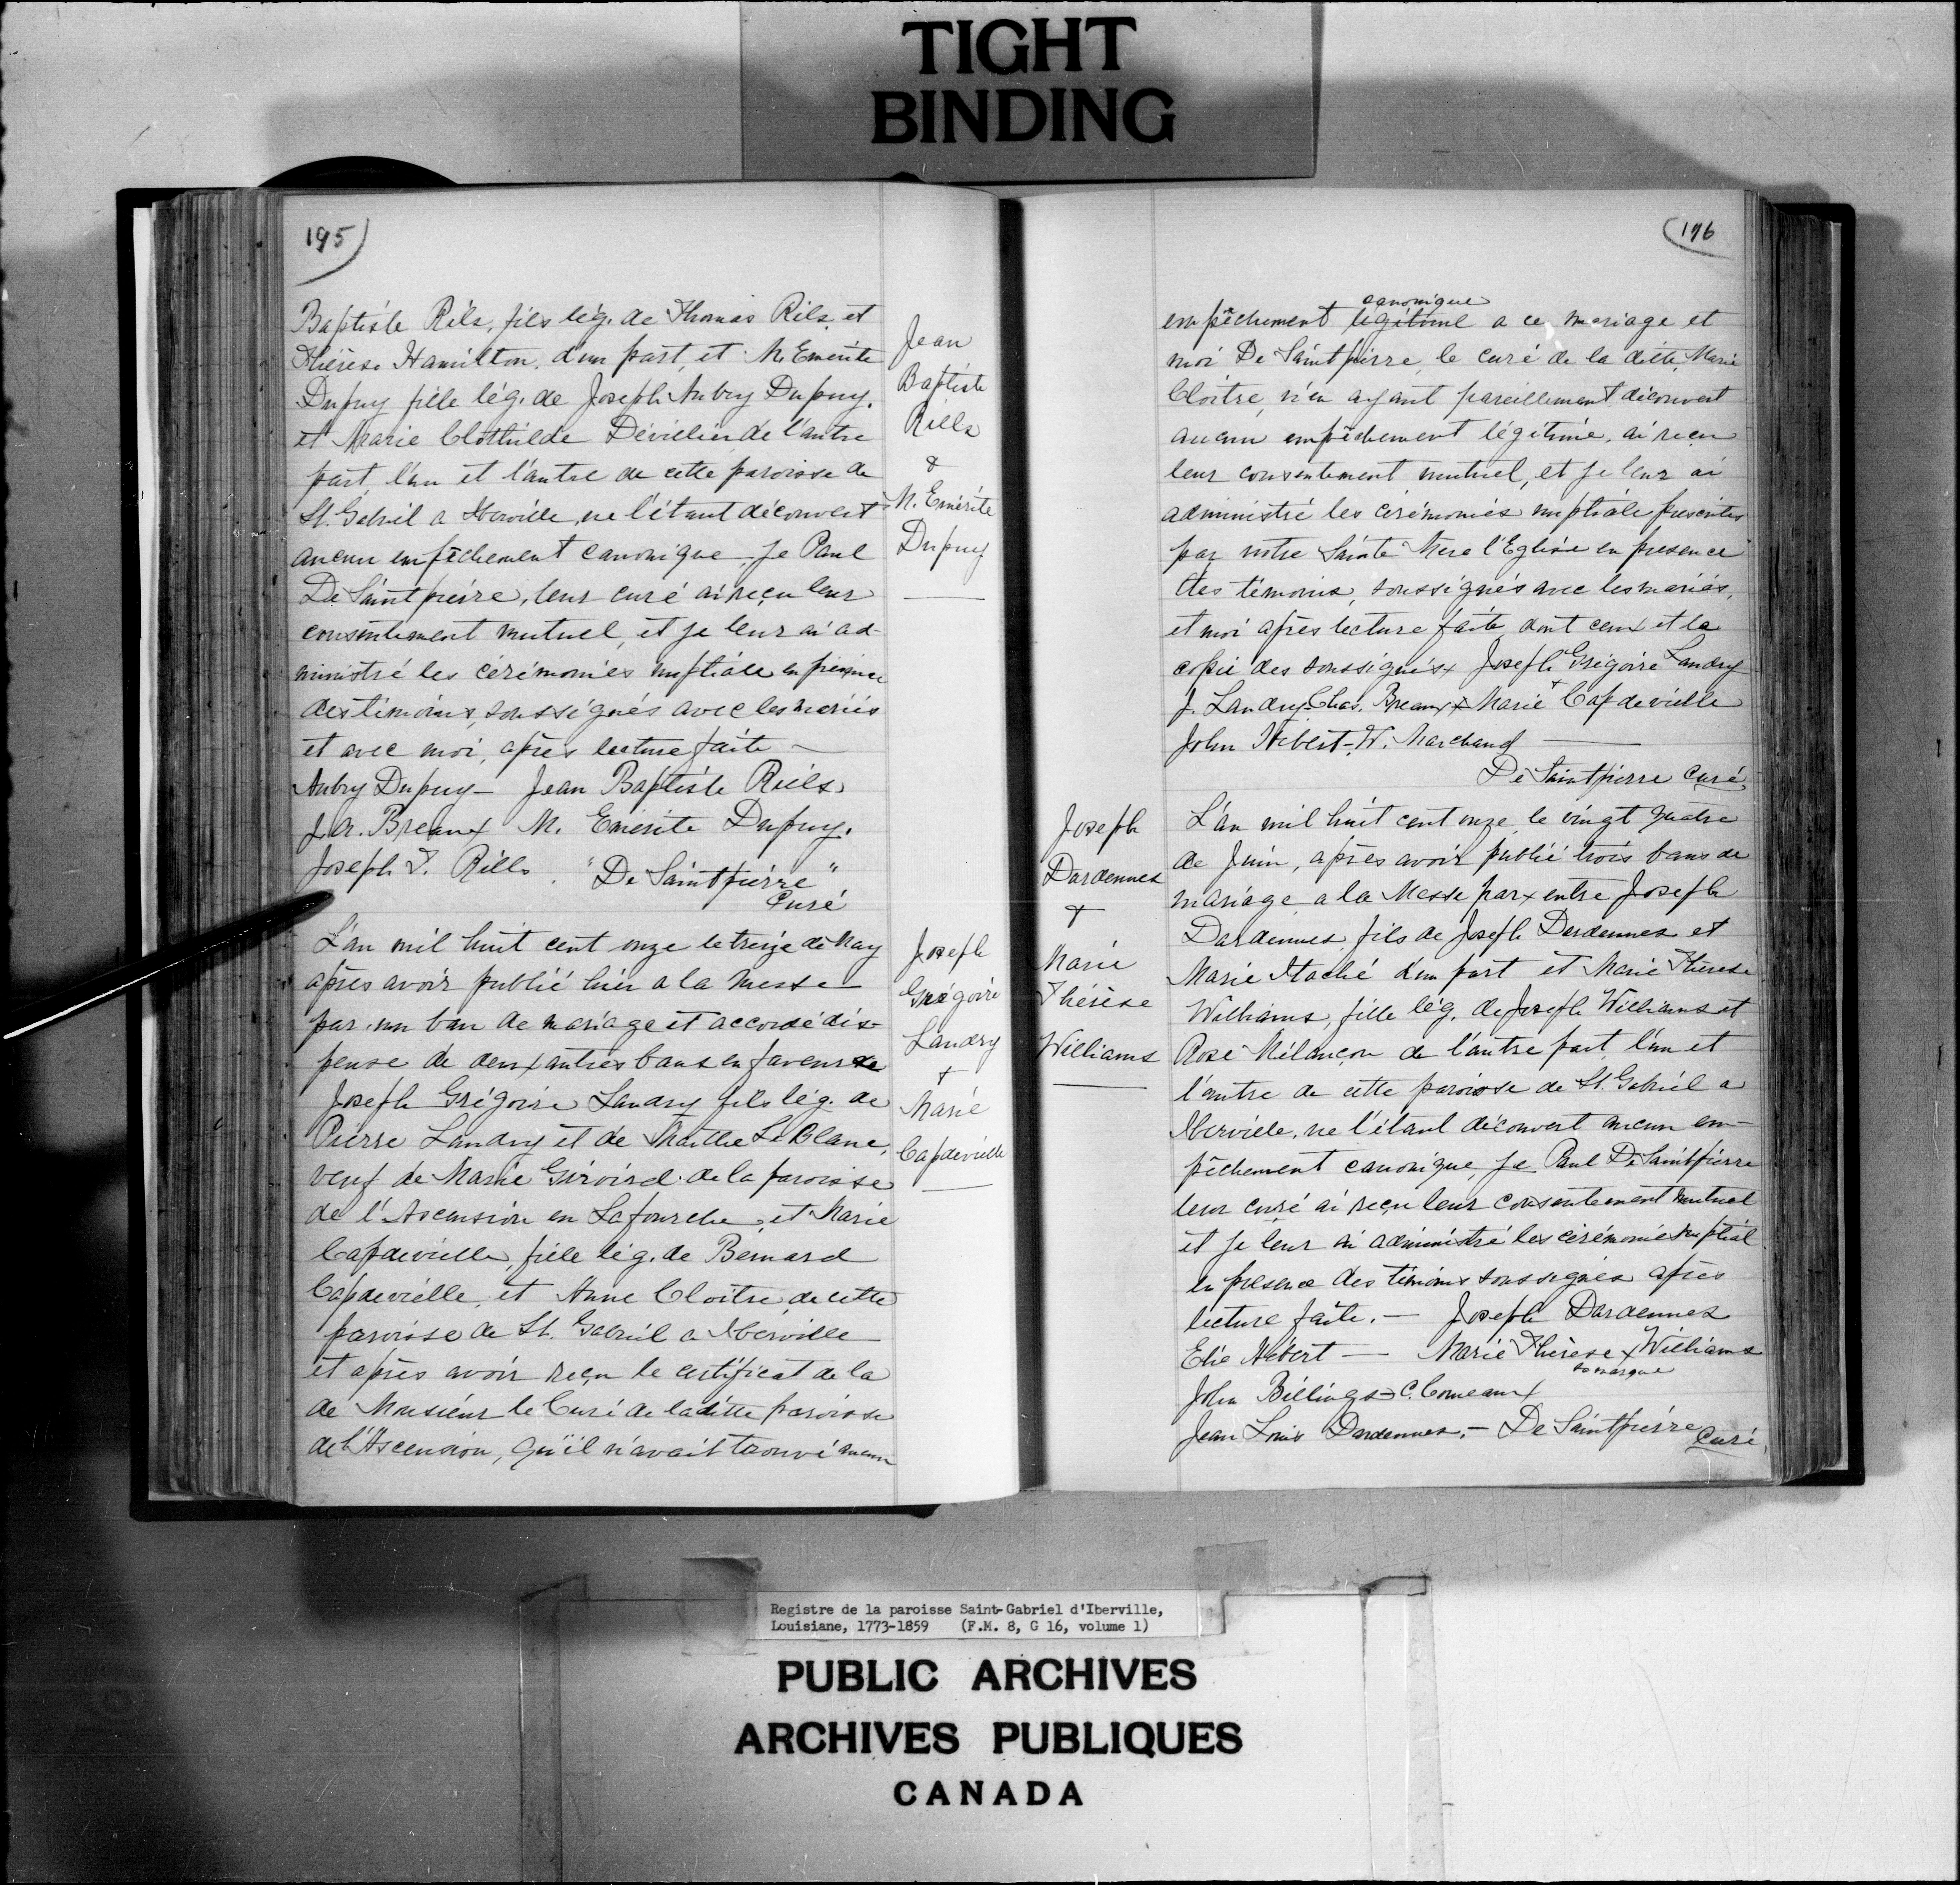 TIGHT
BINDING
195
Baptiste Rils, fils lég. de Thomas Rils, et
Thérèse Hamilton, d'un part, et M. Emérite
Dupuy fille lég. de Joseph Aubry Dupuy.
et Marie Clothilde Dévillier de l'autre
part, l'un et l'autre de cette paroisse de
St. Gabriel a Iberville, ne l'étant découvert
aucun empêchement canonique, je Paul
De Saintpierre, leur curé ai reçu leur
consentement mutuel, et je leur ai ad-
ministré les cérémonies nuptiale en présence
des témoins, soussignés avec les mariés
et avec moi, après lecture faite —
Aubry Dupuy — Jean Baptiste Riels
J. A. Breaux M. Emérite Dupuy.
Joseph T. Rills. "De Saintpierre"
Curé
Jean
Baptiste
Rills
&
M. Emérite
Dupuy
L'an mil huit cent onze le treize de May
après avoir publié hier a la messe
par. un ban de mariage et accordé dis-
pense de deux autres bans en faveur de
Joseph Grégoire Landry fils lég. de
Pierre Landry et de Marthe Le Blanc,
veuf de Marie Giroird. de la paroisse
de l'Ascension en Lafourche, et Marie
Capdevielle, fille lég. de Bernard
Capdevielle, et Anne Cloitre, de cette
paroisse de St. Gabriel a Iberville
et après avoir reçu le certificat de la
de Monsieur le Curé de la ditte paroisse
de l'Ascension, qu'il n'avait trouvé aucun
Joseph
Grégoire
Landry
+
Marie
Capdevielle
196
canonique
empêchement légitime a ce mariage et
moi De Saintpierre, le curé de la ditte, Marie
Cloitre, n'en ayant pareillement découvert
aucun empêchement légitime, ai reçu
leur consentement mutuel, et je leur ai
administré les cérémonies nuptiale prescrites
par notre Sainte Mere l'Eglise en presence
des témoins, soussignés avec les mariés,
et moi après lecture faite, dont ceux et la
copie des soussignés x Joseph Grégoire Landry
J. Landry - Chas. Breaux x Marie + Capdevielle
John Hébert - W. Marchand —
De Saintpierre Curé
L'an mil huit cent onze, le vingt quatre
de Juin, après avoir publié trois bans de
mariage a la Messe par x entre Joseph
Dardennes, fils de Joseph Dardennes et
Marie Itaché d'un part et Marie Thérèse
Williams, fille lég. de Joseph Williams et
Rose Mélançon de l'autre part, l'un et
l'autre de cette paroisse de St. Gabriel a
Iberville, ne l'étant découvert aucun em-
pêchement canonique, je Paul De Saintpierre
leur curé ai reçu leur consentement mutuel
et je leur ai administré les cérémonies nuptial
en presence des témoins soussignés après
lecture faite. — Joseph Dardennes
Elie Hébert — Marie Thérèse x Williams
sa marque
John Billings - C. Comeaux
Jean Louis Dardennes. — De Saintpierre Curé
Joseph
Dardennes
+
Marie
Thérèse
Williams
Registre de la paroisse Saint-Gabriel d'Iberville,
Louisiane, 1773-1859 (F.M. 8, G 16, volume 1)
PUBLIC ARCHIVES
ARCHIVES PUBLIQUES
CANADA